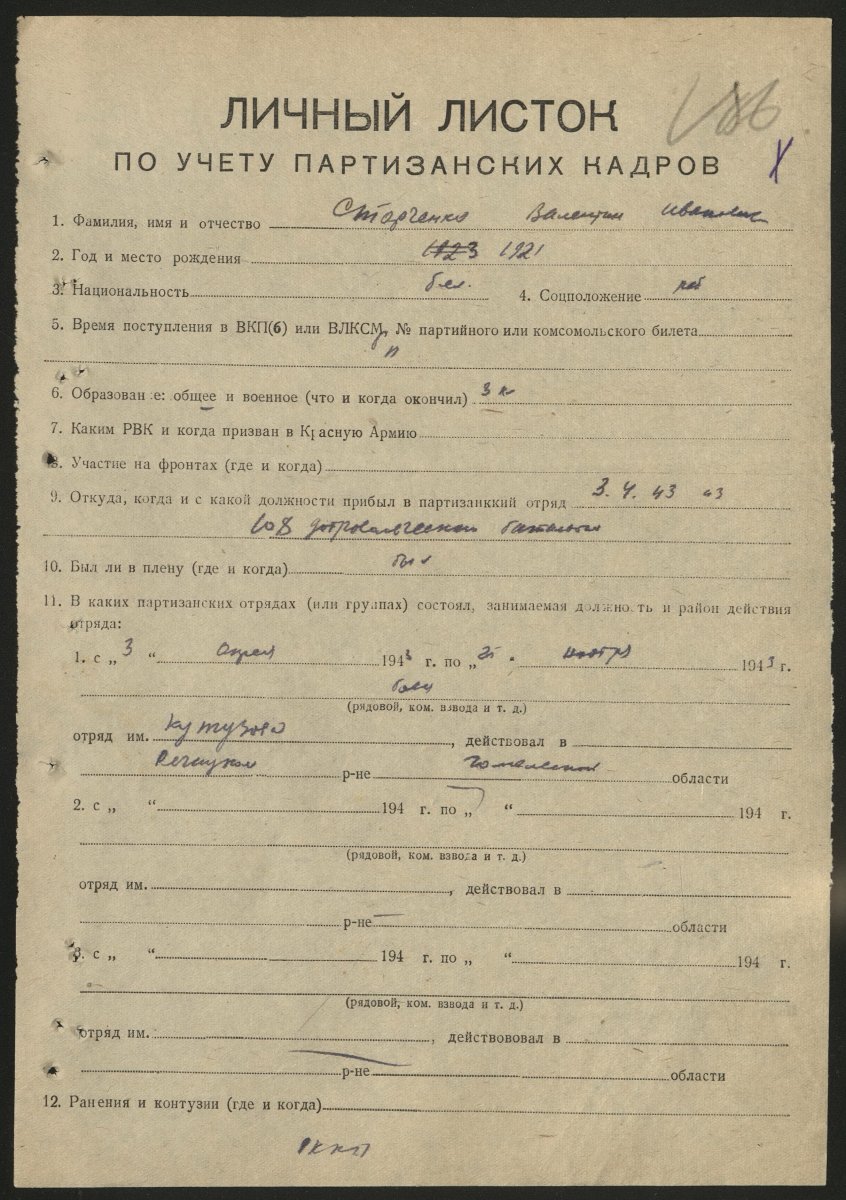 ЛИЧНЫЙ ЛИСТОК
ПО УЧЕТУ ПАРТИЗАНСКИХ КАДРОВ
1. Фамилия, имя и отчество Старченко Валентин Иванович
2. Год и место рождения 1923 1921
3. Национальность бел. 4. Соцположение раб
5. Время поступления в ВКП(б) или ВЛКСМ, № партийного или комсомольского билета
6. Образован е: общее и военное (что и когда окончил) 3 к
7. Каким РВК и когда призван в Красную Армию
8. Участие на фронтах (где и когда)
9. Откуда, когда и с какой должности прибыл в партизанккий отряд 3. 4. 43 43
10. Был ли в плену (где и когда) был
11. В каких партизанских отрядах (или группах) состоял, занимаемая должность и район действия
отряда:
1. с „ 3 “ апреля 1943 г. по „ 25 “ ноября 1943 г.
боец
(рядовой, ком. взвода и т. д.)
отряд им. Кутузова, действовал в
Речицком р-не Гомельской области
2. с „ “ 194 г. по „ “ 194 г.
(рядовой, ком. взвода и т. д.)
отряд им. , действовал в
р-не области
3. с „ “ 194 г. по „ “ 194 г.
(рядовой, ком. взвода и т. д.)
отряд им. , действововал в
р-не области
12. Ранения и контузии (где и когда)